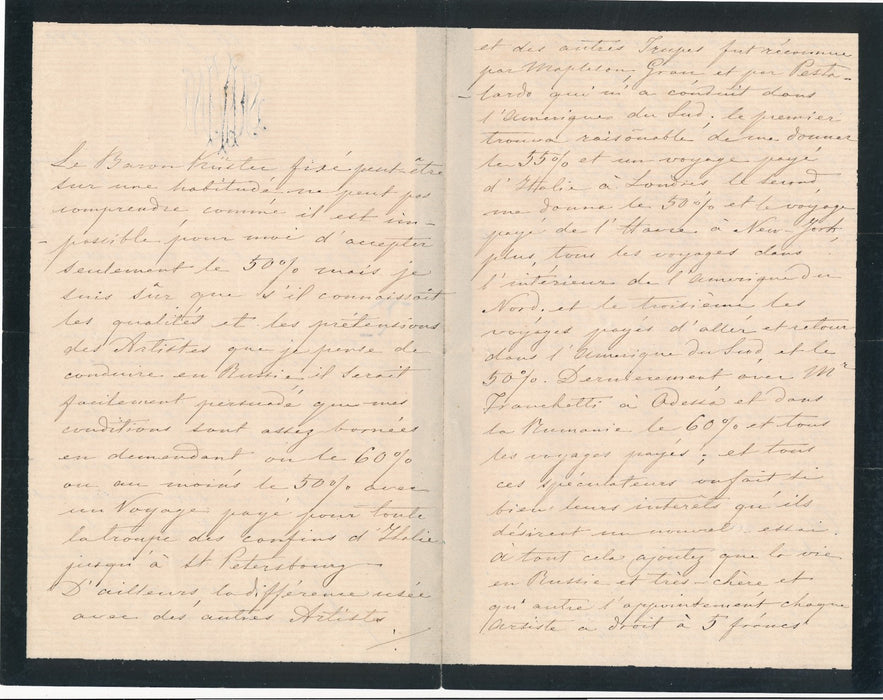 Le Baron Küster fixé peut-être
sur une habitude ne peut pas
comprendre comme il est im-
-possible pour moi d'accepter
seulement le 50% mais je
suis sûr que s'il connaissait
les qualités et les prétensions
des Artistes que je pense de
conduire en Russie il serait
facilement persuadé que mes
conditions sont assez bornées
en demandant ou le 60%
ou au moins le 50% avec
un Voyage payé pour toute
la troupe des confins d'Italie
jusqu'à St Petersbourg
D'ailleurs la différence usée
avec des autres Artists
./.
et des autres Trupes fut réconnue
par Mapleson, Grau et par Pesta-
-lardo qui m'a conduit dans
l'Amerique du Sud; le premier
trouva raisònable de me donner
le 55% et un voyage payé
d'Italie à Londres le second
me donna le 50% et le voyage
payé de l'Havre à New-York
plus, tous les voyages dans
l'intérieur de l'Amerique du
Nord. et le troisième les
voyages payés d'aller et retour
dans l'Amerique du Sud, et le
50%. Dernierement avec Mr
Franchetti à Odessa et dans
la Rumanie le 60% et tous
les voyages payés; et tous
ces spéculateurs on fait si
bien leurs interêts qu'ils
désirent un nouvel essai.
A tout cela ajoutez que la vie
en Russie et très-chère et
qu'autre l'appointement chaque
Artiste a droit à 5 francs